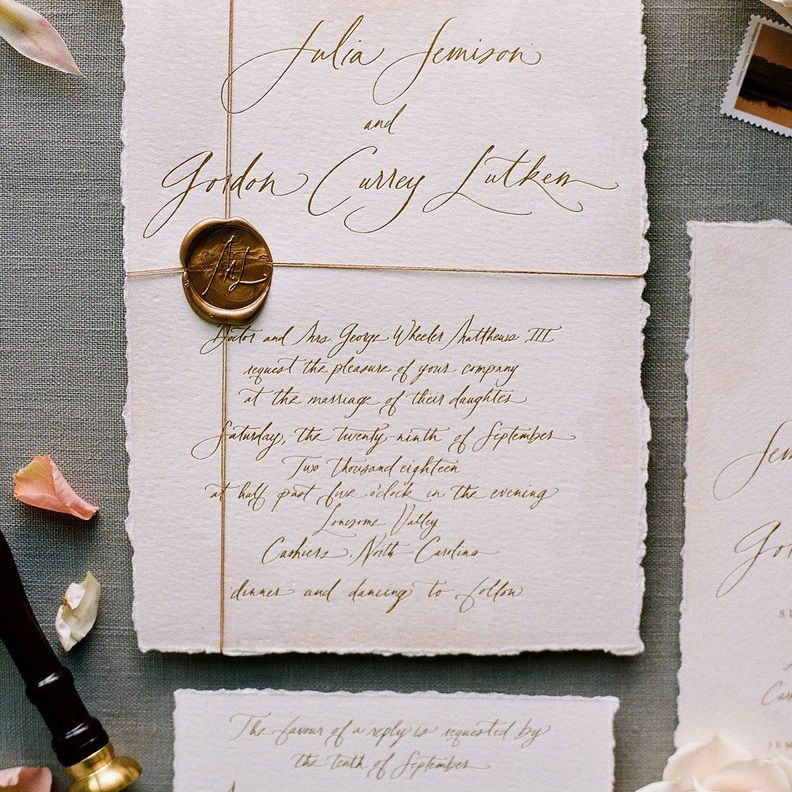 Julia Jemison
and
Gordon Currey Lutken
ML
Doctor and Mrs George Wheeler Matthews III
request the pleasure of your company
at the marriage of their daughter
Saturday, the twenty ninth of September
Two thousand eighteen
at half past five o'clock in the evening
Lonesome Valley
Cashiers, North Carolina
dinner and dancing to follow
The favour of a reply is requested by
the tenth of September